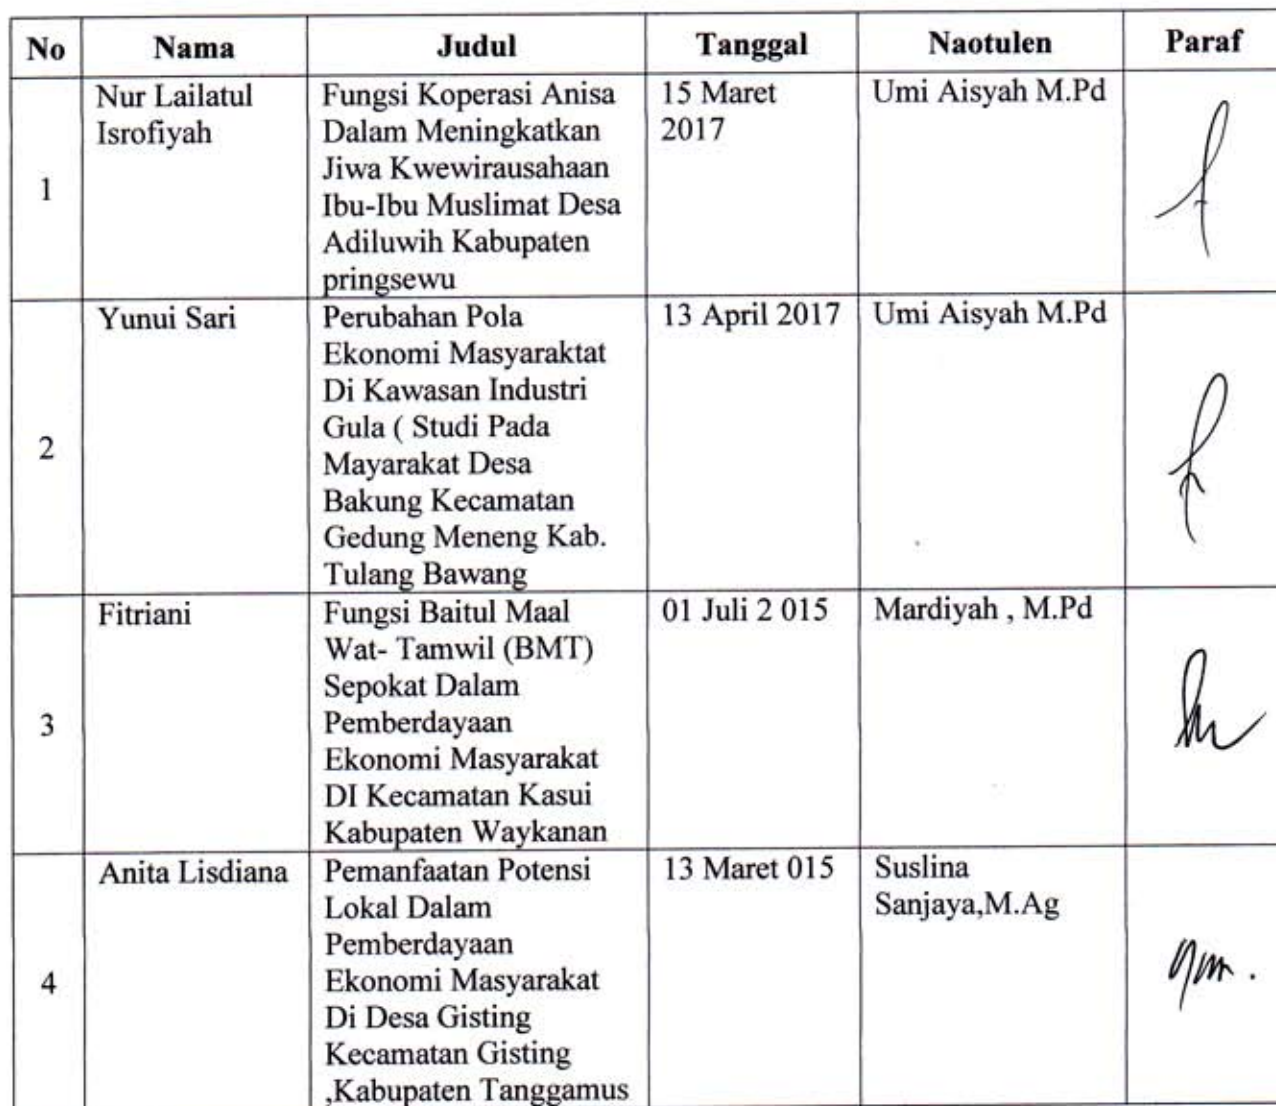 No Nama Judul Tanggal Naotulen Paraf
1
Nur Lailatul
Isrofiyah
Fungsi Koperasi Anisa
Dalam Meningkatkan
Jiwa Kwewirausahaan
Ibu-Ibu Muslimat Desa
Adiluwih Kabupaten
pringsewu
15 Maret
2017
Umi Aisyah M.Pd
2
Yunui Sari
Perubahan Pola
Ekonomi Masyaraktat
Di Kawasan Industri
Gula ( Studi Pada
Mayarakat Desa
Bakung Kecamatan
Gedung Meneng Kab.
Tulang Bawang
13 April 2017
Umi Aisyah M.Pd
3
Fitriani
Fungsi Baitul Maal
Wat- Tamwil (BMT)
Sepokat Dalam
Pemberdayaan
Ekonomi Masyarakat
DI Kecamatan Kasui
Kabupaten Waykanan
01 Juli 2 015
Mardiyah , M.Pd
4
Anita Lisdiana
Pemanfaatan Potensi
Lokal Dalam
Pemberdayaan
Ekonomi Masyarakat
Di Desa Gisting
Kecamatan Gisting
,Kabupaten Tanggamus
13 Maret 015
Suslina
Sanjaya,M.Ag